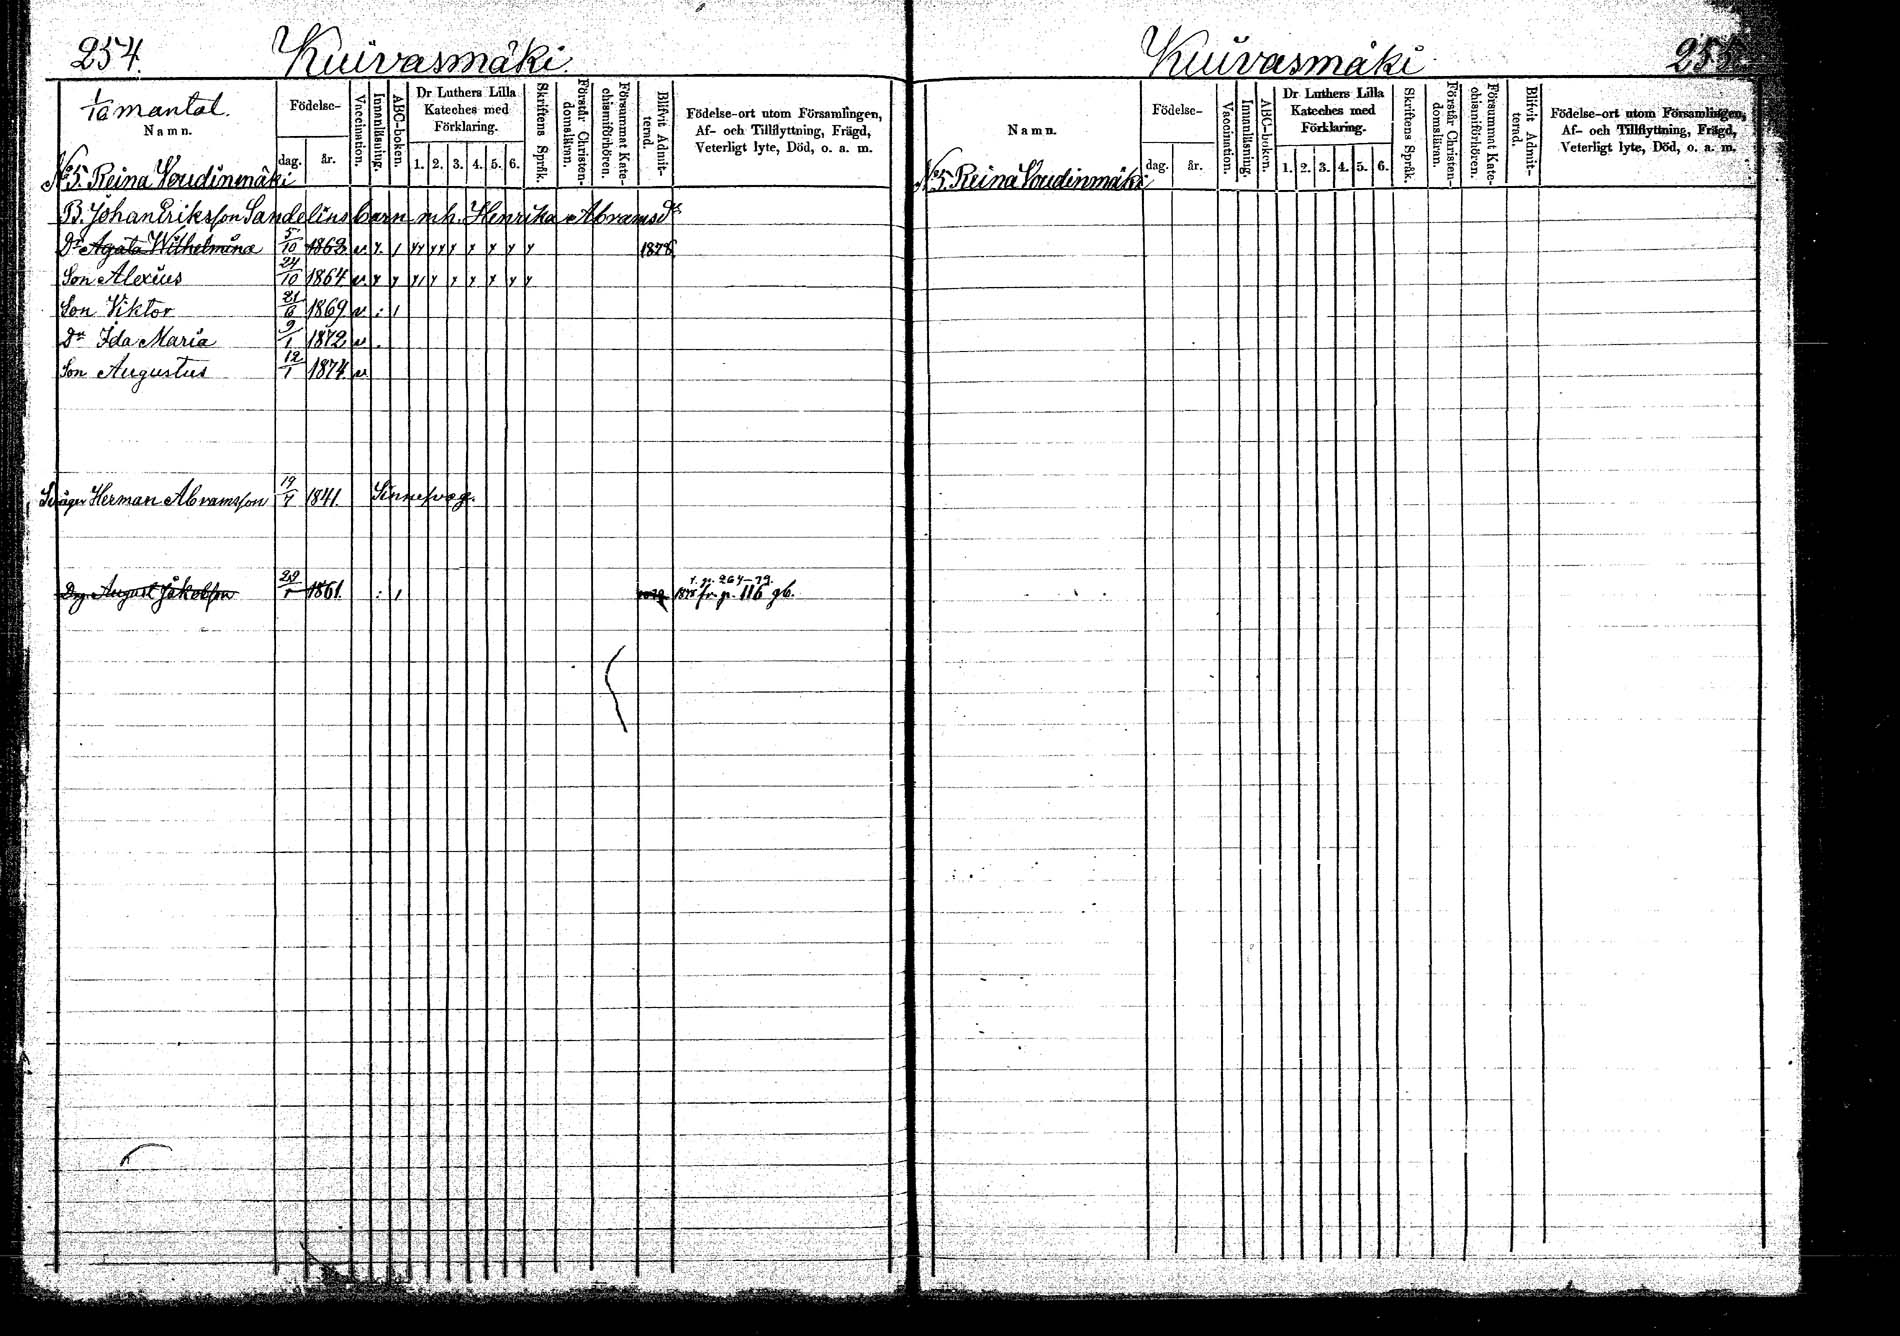 254. Kuivasmäki.
1/16 mantal.
Namn.
Födelse-
dag. år.
Vaccination.
Innanläsning.
ABC-boken.
Dr Luthers Lilla Kateches med Förklaring.
1. 2. 3. 4. 5. 6.
Skriftens Språk.
Förstår Christendomsläran.
Försummat Katechismiförhören.
Blifvit Admitterad.
Födelse-ort utom Församlingen,
Af- och Tillflyttning, Frägd,
Veterligt lyte, Död, o. a. m.
No 5. Reina Soudinmäki
B. Johan Eriksson Sandelius barn m h. Henrika Abramsdr
Dr Agata Wilhelmina 5/10 1862 v 1878.
Son Alexius 24/10 1864 v
Son Viktor 21/6 1869 v
Dr Ida Maria 9/1 1872 v
Son Augustus 12/1 1874 v
Svåger Herman Abramsson 19/7 1841. Sinnesvag.
t. p. 264-79.
Drg. August Jakobson 1861. 1878 fr. p. 116 gb.
Kuivasmäki 255.
Namn.
Födelse-
dag. år.
Vaccination.
Innanläsning.
ABC-boken.
Dr Luthers Lilla Kateches med Förklaring.
1. 2. 3. 4. 5. 6.
Skriftens Språk.
Förstår Christendomsläran.
Försummat Katechismiförhören.
Blifvit Admitterad.
Födelse-ort utom Församlingen,
Af- och Tillflyttning, Frägd,
Veterligt lyte, Död, o. a. m.
No 5. Reina Soudinmäki